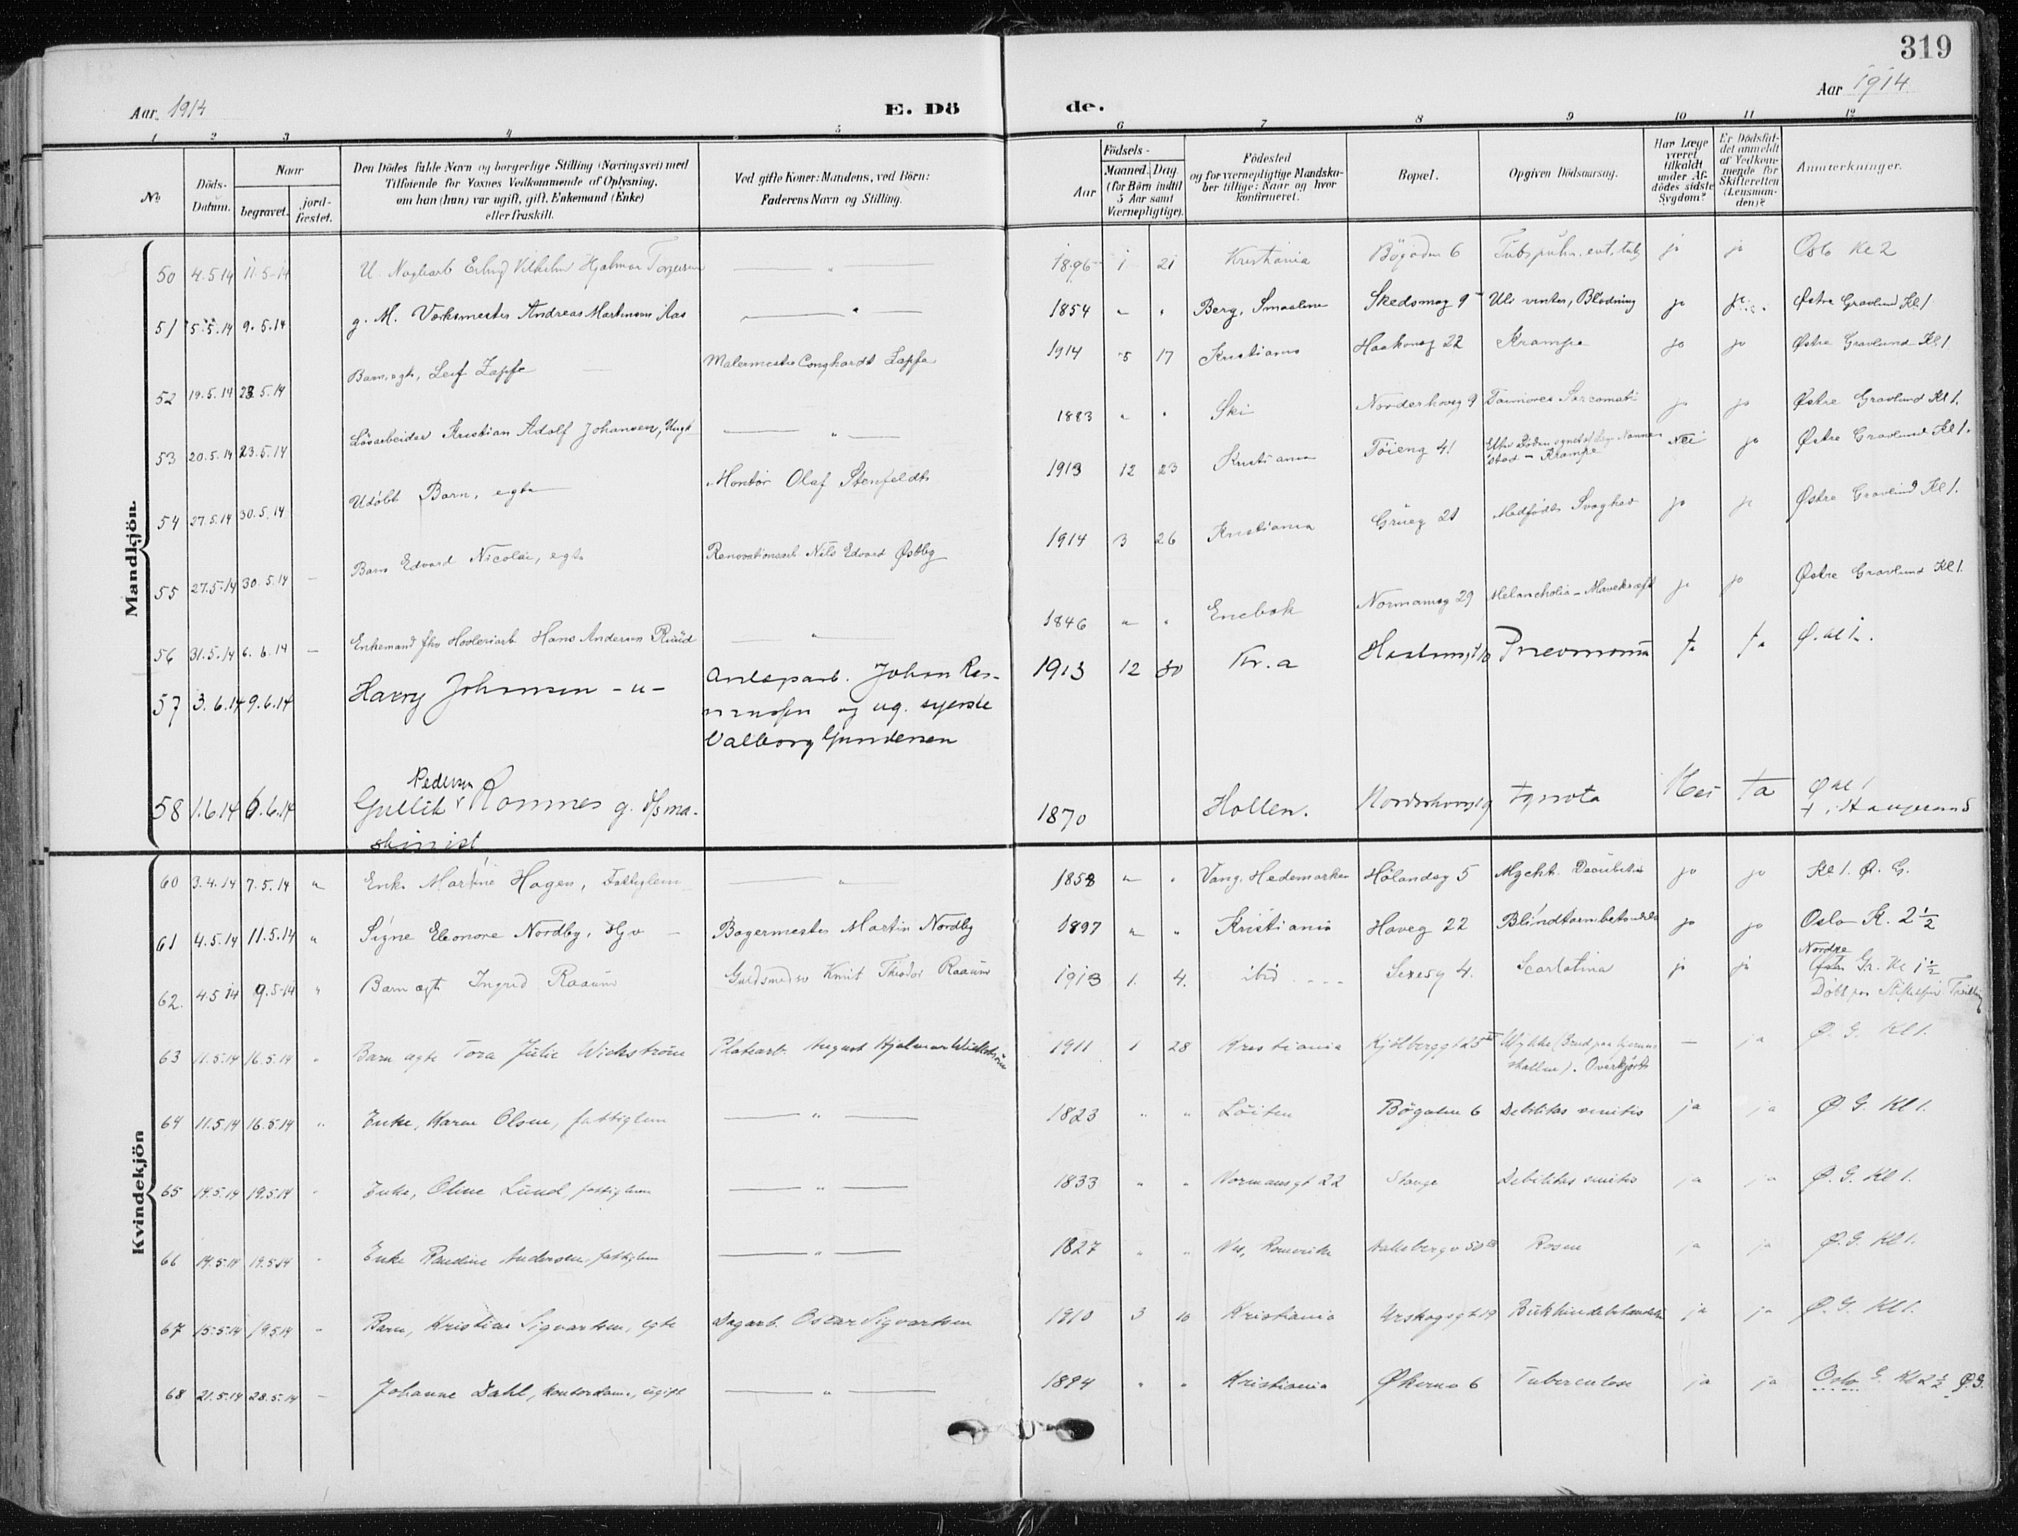 319
Aar 1914 E. Dö de. Aar 1914
1 2 3 4 5 6 7 8 9 10 11 12
No. Döds-Datum. Naar begravet. jordfæstet. Den Dödes fulde Navn og borgerlige Stilling (Næringsvei) med Tilföiende for Voxnes Vedkommende af Oplysning, om han (hun) var ugift, gift, Enkemand (Enke) eller fraskilt. Ved gifte Koner: Mandens, ved Börn: Faderens Navn og Stilling. Födsels- Aar Maaned. Dag. (for Børn indtil 5 Aar samt Værnepligtige). Födested og for værnepligtige Mandskaber tillige: Naar og hvor konfirmeret. Bopæl. Opgiven Dödsaarsag. Har Læge været tilkaldt under Afdödes sidste Sygdom? Er Dödsfaldet anmeldt af Vedkommende for Skifteretten (Lensmanden)? Anmerkninger.
Mandkjön.
50 4.5.14 11.5.14 U. Erling Vilhelm Hjalmar Torgersen — " — 1896 1 21 Kristiania Bögaden 6 ja ja Oslo Kl 2
51 5.5.14 9.5.14 g. M. Værksmester Andreas Martinsen Aas — " — 1854 " " Berg, Smaalene Skedsmog 9 Ulc ventr, Blødning ja ja Østre Gravlund Kl 1
52 19.5.14 23.5.14 Barn, egte, Leif Zapfe Malermester Zapfe 1914 5 17 Kristiania Haakonsg 22 Krampe ja ja Østre Gravlund Kl 1
53 20.5.14 23.5.14 Løsarbeider Kristian Adolf Johansen, Ugift — " — 1883 " " Ski Norderhovsg 9 ja ja Østre Gravlund Kl 1.
54 27.5.14 30.5.14 Udöbt Barn, egte Montør Olaf Stenfeldt 1913 12 23 Kristiania Töieng 41 Krampe Nei ja Østre Gravlund Kl 1.
55 27.5.14 30.5.14 — Barn Edvard Nicolai, egte Renovationsarb Nils Edvard Østby 1914 3 26 Kristiania Grüeg 21 Medfødt Svaghed ja ja Østre Gravlund Kl 1.
56 31.5.14 6.6.14 — Enkemand fhv Høvleriarb Hans Andersen Ruud — " — 1846 " " Enebak Normannsg 29 Melancholia – Mavekræft ja ja Østre Gravlund Kl 1.
57 3.6.14 9.6.14 Harry Johansen – u – Anlegsarb. Johan Ras-
mussen og ug. syerske
Valborg Gundersen 1913 12 30 Kr.a Pneumonia Ja Ja Ø. Kl 1.
58 1.6.14 6.6.14 Gullik Pedersen Romnes g. ma-
skinist 1870 Hollen. Nordrehovsg 9 Ignota Nei Ja Ø Kl 1
Kvindekjön
60 3.4.14 7.5.14 " Enk. Martine Hagen, Fattiglem — " — 1858 " " Vang, Hedemarken Hølandsg 5 ja ja Kl 1. Ø. G.
61 4.5.14 11.5.14 " Signe Eleonore Nordby, Hjv — Bagermester Martin Nordby 1897 " " Kristiania Haveg 22 Blindtarmbetændelse ja ja Oslo K. 2 ½
62. 4.5.14 9.5.14 " Barn egt Ingrid Raaum Guldsmedsv Knut Theodor Raaum 1913 1. 4. ibid Sexesg 4. Scarlatina ja ja Nordre Gr. Kl 1 ½
Döbt
63 11.5.14 16.5.14 " Barn egte Tora Julie Wickström Platearb. August Hjalmar Wickström 1911 1 28 Kristiania Kjölberggt 25 Ulykke (Brud paa hjerne-
skallen). Overkjørt — ja Ø. G. Kl 1.
64 11.5.14 16.5.14 " Enke, Karen Olsen, fattiglem — " — 1823 " " Löiten Bögaten 6 Debilitas senilis ja ja Ø. G. Kl 1.
65 14.5.14 19.5.14 " Enke, Oline Lund, fattiglem — " — 1833 " " Normansgt 22 Stange Debilitas senilis ja ja Ø. G. Kl 1.
66 14.5.14 19.5.14 " Enke Randine Andersen, fattiglem — " — 1827 " " Nes, Romerike Rosen ja ja Ø. G. Kl 1.
67 15.5.14 19.5.14 " Barn, Kristine Sigvartsen, egte Dagarb. Oscar Sigvartsen 1910 3 10 Kristiania Urskogsgt 19 Bukhindebetændelse ja ja Ø. G. Kl 1.
68 21.5.14 28.5.14 " Johanne Dahl, kontordame, ugift — " — 1894 " " Kristiania Økernv 6 Tuberculose ja ja Oslo G. Kl 2 ½ Ø. G.